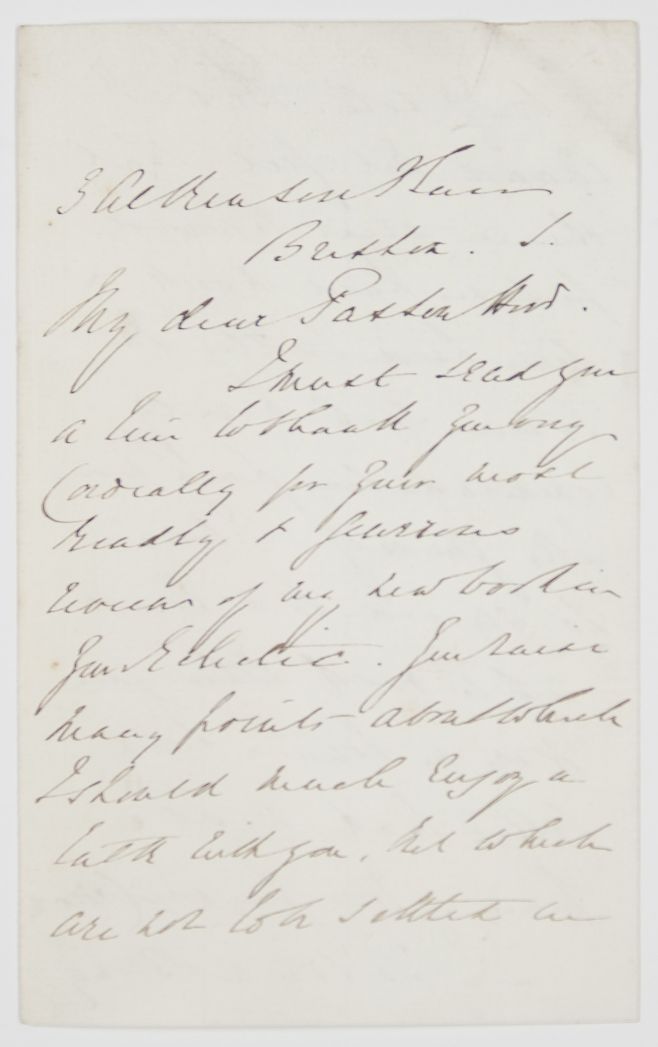 3 Alkinson Place
Brixton. S.
My dear Paxton Hood.
I must send you
a line to thank you very
cordially for your most
kindly & generous
review of my new book in
your Eclectic. You raise
many points about which
I should much enjoy a
talk with you, but which
are not to be settled in